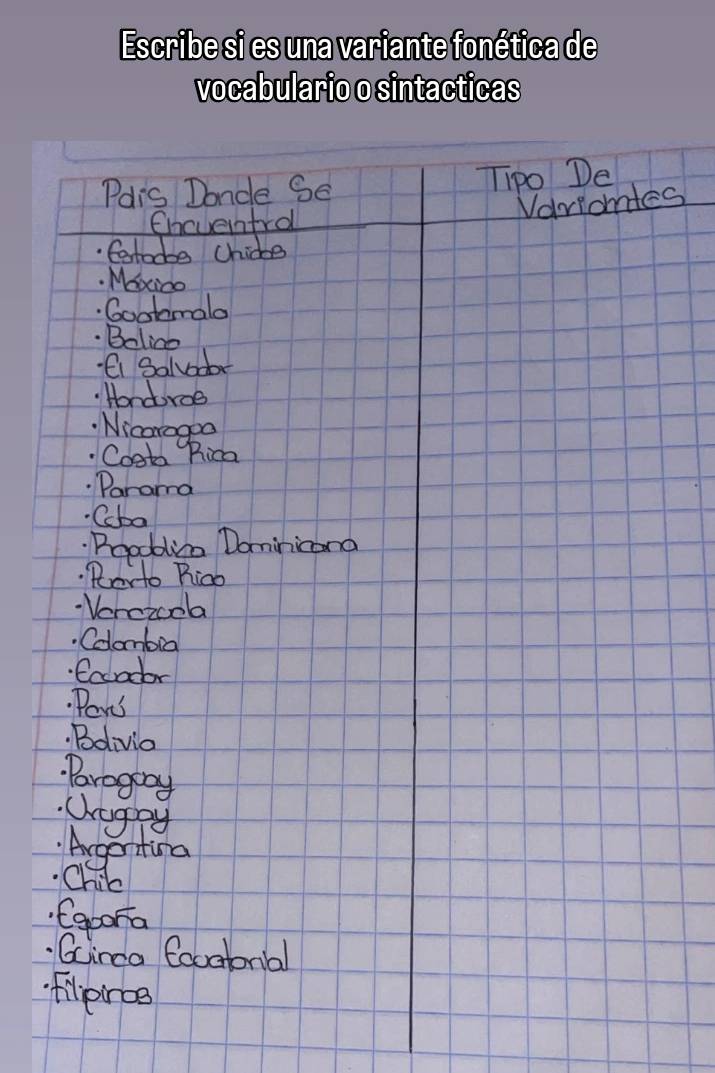 Escribe si es una variante fonética de
vocabulario o sintacticas
País Donde Se
Encuentra
Tipo De
Variantes
· Estados Unidos
· México
· Guatemala
· Belice
· El Salvador
· Honduras
· Nicaragua
· Costa Rica
· Panama
· Cuba
· Republica Dominicana
· Puerto Rico
· Venezuela
· Colombia
· Ecuador
· Perú
· Bolivia
· Paraguay
· Uruguay
· Argentina
· Chile
· España
· Guinea Ecuatorial
· Filipinas